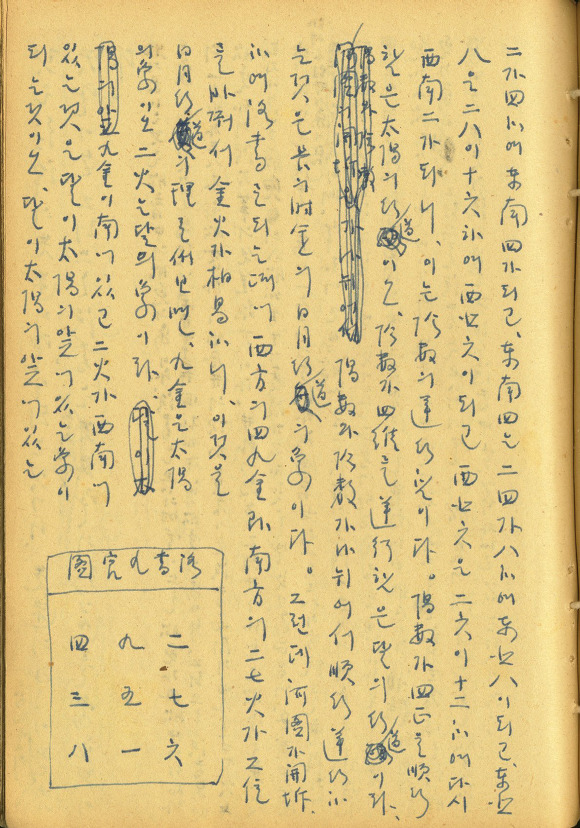 二가 四하여 东南四가 되고, 东南四는 二四가 八하여 东北八이 되고, 东北
八은 二八이 十六하여 西北六이 되고 西北六은 二六이 十二하여 다시
西南二가 되니, 이는 陰數의 逆行이다. 陽數가 四正을 順行
함은 太陽의 行道이오, 陰數가 四維를 逆行함은 달의 行道이라.
陽數와 陰數가 나뉘어서 順行逆行하
는 것은 日月行道의 象이다. 그런데 河圖가 開坼
하여 洛書를 되는 때에 西方의 四九金과 南方의 二七火가 그 位
를 바꿔서 金火가 相易하니, 이것을
日月行道의 理로써 보면, 九金은 太陽
의 象이오 二火는 달의 象이라.
九金이 南에 있고 二火가 西南에
있는 것은 달이 太陽의 앞에 있는 象이
되는 것이오, 달이 太陽의 앞에 있는
洛書九宮圖
四 九 二
三 五 七
八 一 六